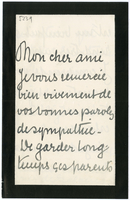 Mon cher ami
Je vous remercie
bien vivement de
vos bonnes paroles
de sympathie –
De garder long
temps ses parents